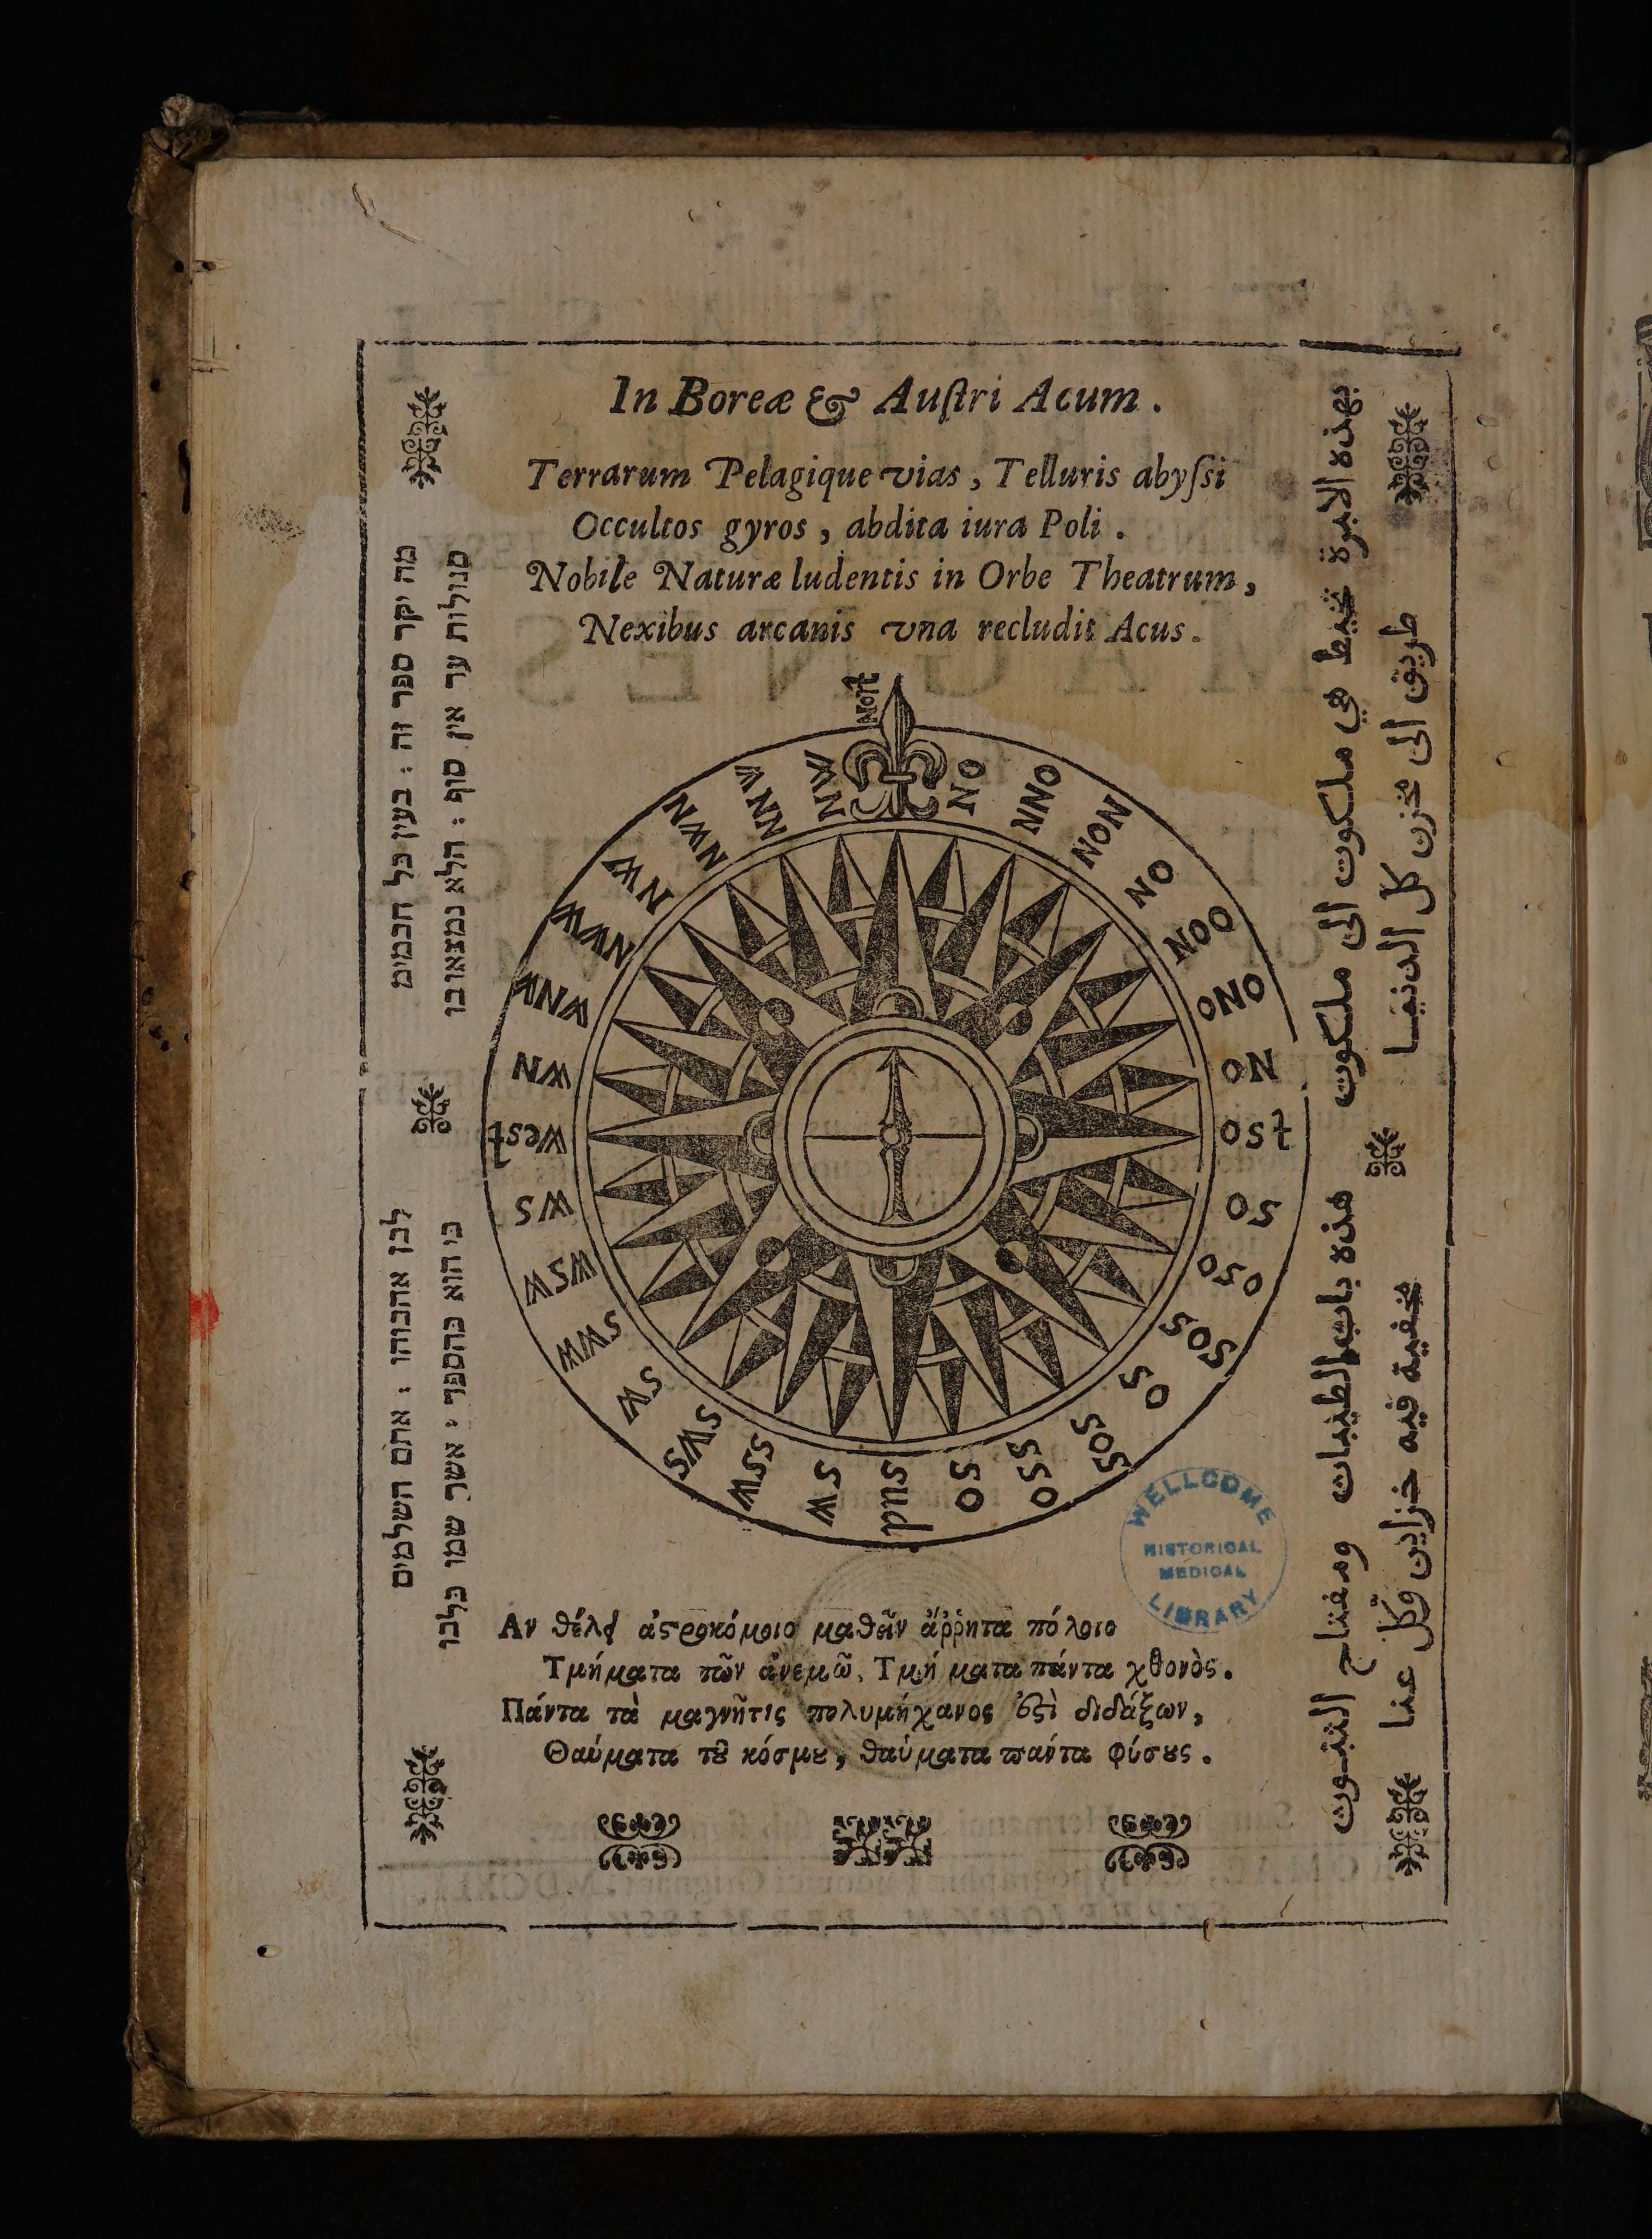 In Boreæ & Auſtri Acum.
Terrarum Pelagique vias, Telluris abyſsi
Occultos gyros, abdita iura Poli.
Nobile Naturæ ludentis in Orbe Theatrum,
Nexibus arcanis vna recludit Acus.
מה יקר ספר זה : בעין כל חכמים
סגולות עד אין סוף : הלא נמצאו בו
לכן אהבוהו : אתם השלמים
כי הוא כהספר : אשר שמו כלבו
Nort
NO
NNO
NON
NO
NOO
ONO
ON
Ost
OS
OSO
SOS
SO
SOS
OSS
SO
Sud
SW
SSW
SWS
SW
SWW
WSW
WS
West
WN
WNW
NWW
NW
NWN
NNW
NW
بهذه الابرة تخيط هي ملكوت الى ملكوت
طريق الى مخزن كل الدنيا
هذه باب الطيبات ومفتاح
مخفية فيه خزاين وكل عنا
Αν θέλῃ ἀστροκόμοιο μαθεῖν ἄῤῥητα πόλοιο
Τμήματα τῶν ἀνεμῶ, Τμήματα πάντα χθονὸς.
Πάντα τὰ μαγνῆτις πολυμήχανος ἐστὶ διδάξων,
Θαύματα τȣ͂ κόσμȣ, θαύματα παύτα φύσȣς.
WELLCOME
HISTORICAL
MEDICAL
LIBRARY